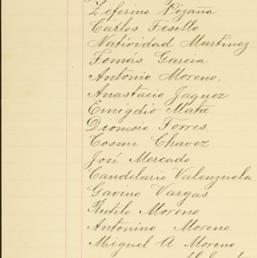 Zeferino Pizaña
Cárlos Tesillo
Natividad Martinez
Tomás Garcia
Antonio Moreno.
Anastacio Jaquez
Emigdio Mata
Dionisio Torres
Cosme Chavez
José Mercado
Candelario Valenzuela
Gavino Vargas
Rutilo Moreno
Antonino Moreno
Miguel A Moreno